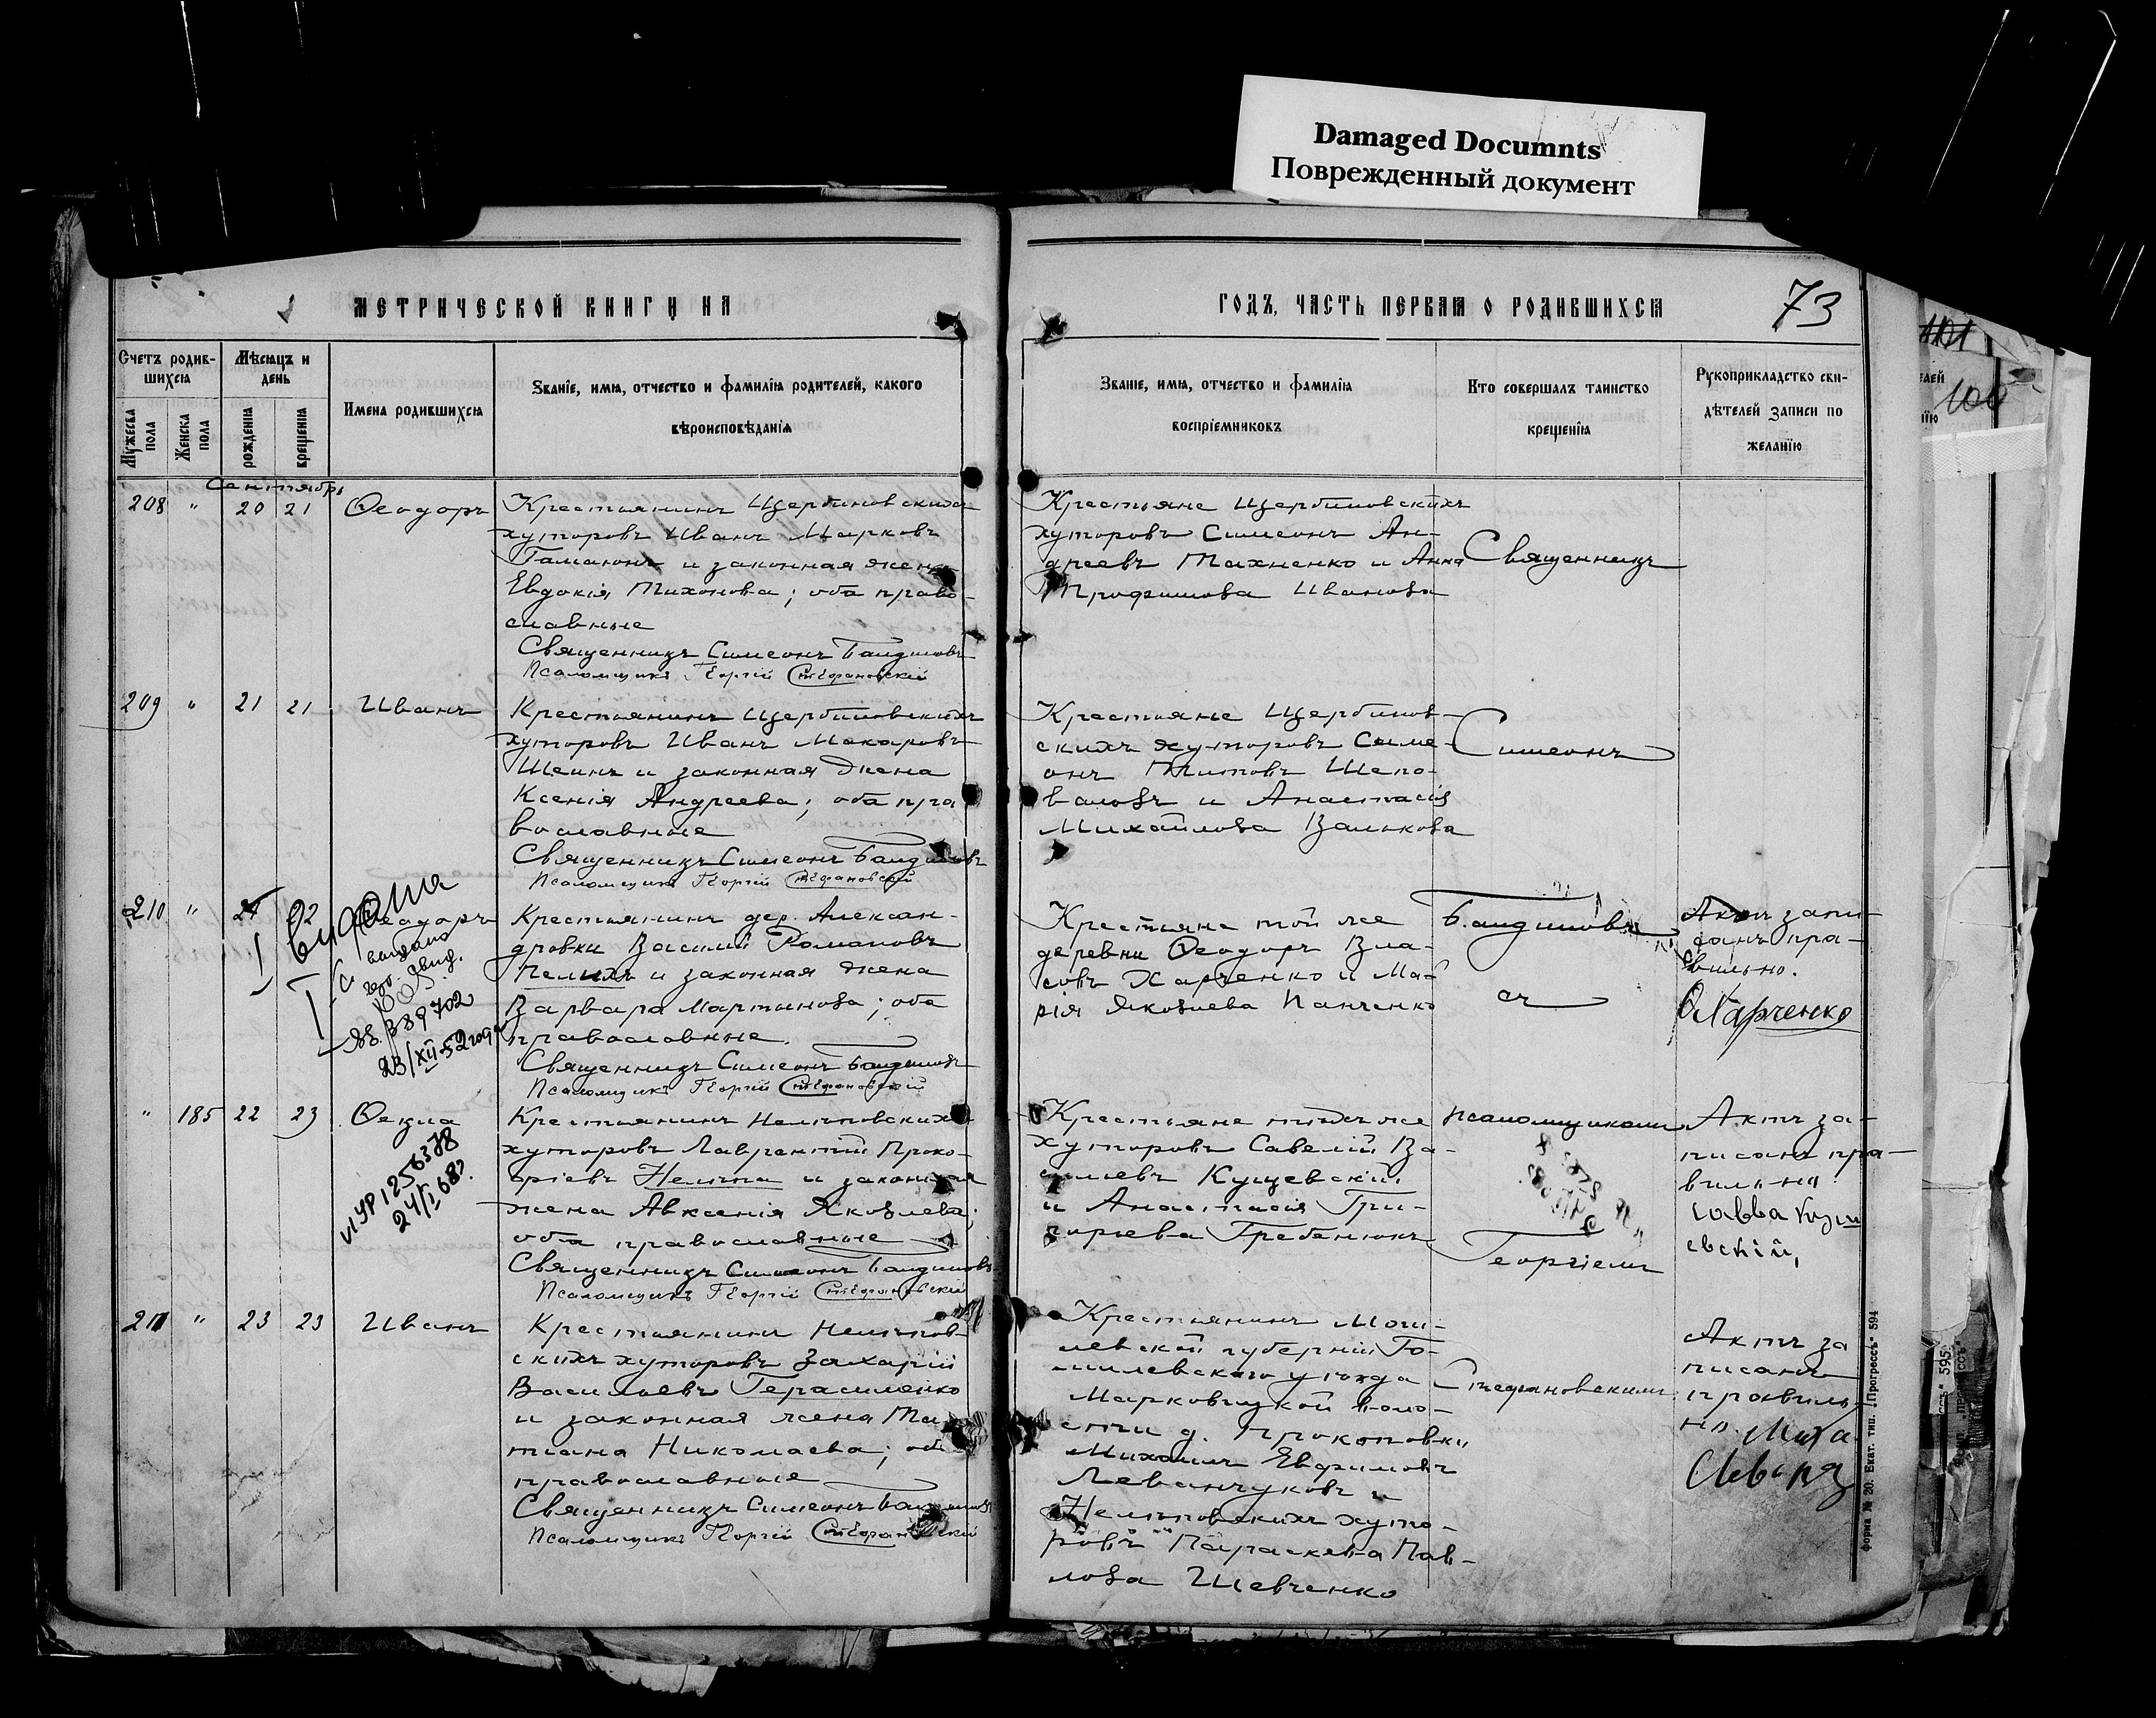 Damaged Documnts
Поврежденный документ
МЕТРИЧЕСКОЙ КНИГИ НА
ГОДЪ, ЧАСТЬ ПЕРВАЯ О РОДИВШИХСЯ
73
Счетъ родив-
шихся
Мужеска пола
Женска пола
Мѣсяцъ и
день
рожденія
крещенія
Имена родившихся
Званіе, имя, отчество и фамилія родителей, какого
вѣроисповѣданія
Званіе, имя, отчество и фамилія
воспріемниковъ
Кто совершалъ таинство
крещенія
Рукоприкладство сви-
дѣтелей записи по
желанію
Сентябрь
208 " 20 21 Ѳеодоръ
Крестьянинъ Щербиновскихъ
хуторовъ Иванъ Марковъ
Гамаюнъ и законная жена
Евдокія Тихонова; оба право-
славные
Священникъ Симеонъ Бандиловъ
Псаломщикъ Георгій Стефановскій
Крестьяне Щербиновскихъ
хуторовъ Симеонъ Ан-
дреевъ Махненко и Анна
Трофимова Иванова
Священникъ
209 " 21 21 Иванъ
Крестьянинъ Щербиновскихъ
хуторовъ Иванъ Макаровъ
Шеинъ и законная жена
Ксенія Андреева; оба пра
вославные
Священникъ Симеонъ
Псаломщикъ Георгій Стефановскій
Крестьяне Щербинов-
скихъ хуторовъ Симе-
онъ Титовъ Шепо-
валовъ и Анастасія
Михайлова Валькова
Симеонъ
210 " 22 Ѳеодоръ
выдано
свид.
389702
23/XII-52 года
Крестьянинъ дер. Алексан-
дровки Василій Романовъ
Пелихъ и законная жена
Варвара Мартынова; оба
православные.
Священникъ Симеонъ
Псаломщикъ Георгій Стефановскій
Крестьяне той же
деревни Ѳеодоръ Вла-
совъ Харченко и Ма-
рія Яковлева Панченко
съ
Актъ запи-
санъ пра-
вильно.
Ѳ Харченко
" 185 22 23 Ѳекла
1256378
24/I 68г.
Крестьянинъ Нелѣповскихъ
хуторовъ Лаврентій Проко-
фіевъ Нелѣпа и законная
жена Авксенія Яковлева;
оба православные
Священникъ Симеонъ
Псаломщикъ Георгій Стефановскій
Крестьяне тѣхъ же
хуторовъ Савелій Ва-
сильевъ Кущевскій
и Анастасія Гри-
горьева Гребенюкъ
псаломщикомъ
Георгіемъ
Актъ за-
писанъ пра-
вильно
Савва Кущ
евскій,
211 " 23 23 Иванъ
Крестьянинъ Нелѣпов-
скихъ хуторовъ Захарій
Васильевъ Герасименко
и законная жена Та
тіана Николаева; оба
православные
Священникъ Симеонъ
Псаломщикъ Георгій Стефановскій
Крестьянинъ Моги-
левской губерніи Го-
мелевскаго уѣзда
Марковицкой воло-
сти д. Прокоповки
Михаилъ Евфимовъ
Леванчуковъ и
Нелѣповскихъ хуто-
ровъ Параскева Пав-
лова Шевченко
Стефановскимъ
Актъ за
писанъ
правиль-
но.
форма № 20. Екат. тип. „Прогрессъ“ 594